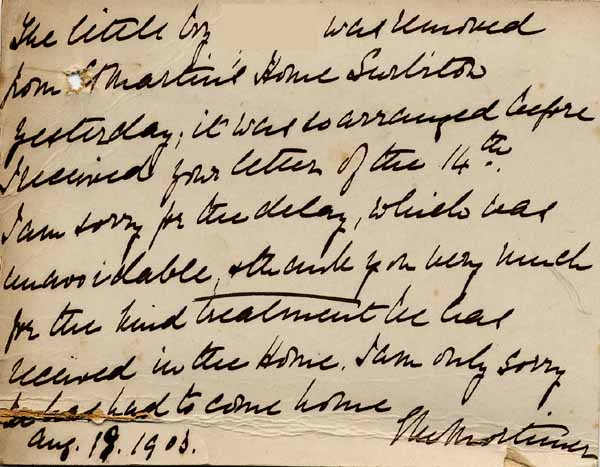 The little boy was removed
from St Martin's Home Surbiton
yesterday; it was so arranged before
I received your letter of the 14th.
I am sorry for the delay, which was
unavoidable, & thank you very much
for the kind treatment he has
received in the Home. I am only sorry
he has had to come home
Mortimer
Aug. 18. 1903.